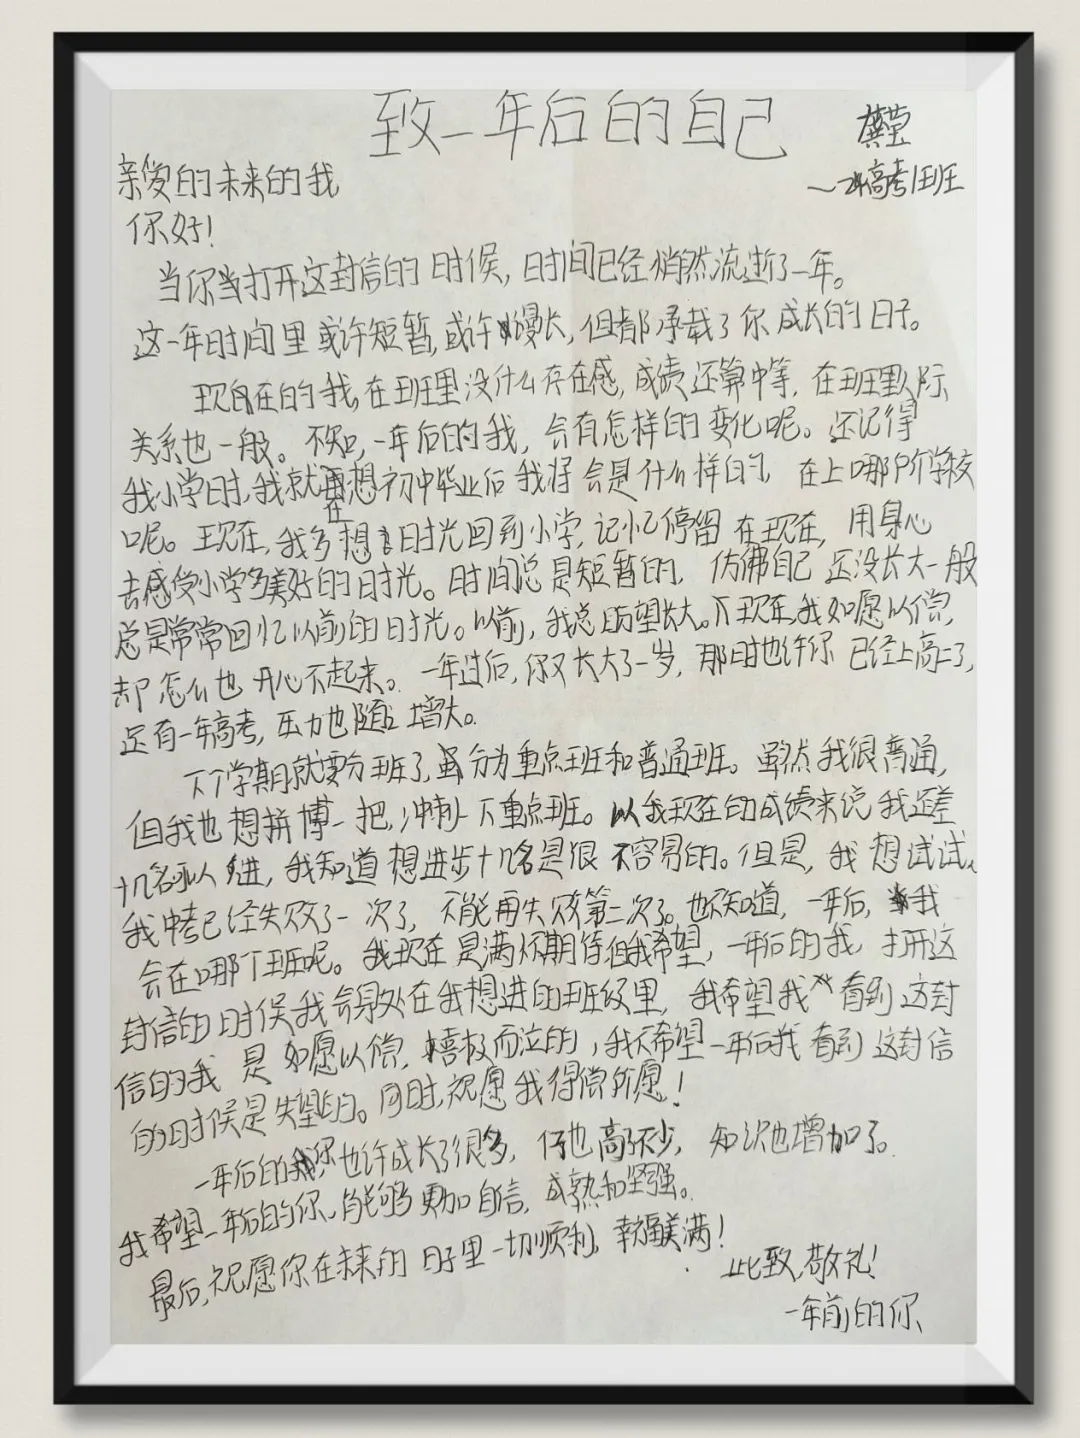 致一年后的自己
龚莹
亲爱的未来的我
高考1班
你好！
当你当打开这封信的时候，时间已经悄然流逝了一年。
这一年时间里或许短暂，或许漫长，但都承载了你成长的日子。
现在的我，在班里没什么存在感，成绩还算中等，在班里人际
关系也一般。不知，一年后的我，会有怎样的变化呢。还记得
我小学时，我就在想初中毕业后我将会是什么样的，在上哪个学校
呢。现在，我多想时光回到小学，记忆停留在现在，用身心
去感受小学多美好的时光。时间总是短暂的，仿佛自己还没长大一般
总是常常回忆以前的时光。以前，我总盼望长大。现在，我如愿以偿，
却怎么也开心不起来。一年过后，你又长大了一岁，那时也许你已经上高二了，
还有一年高考，压力也随 增大。
下个学期就要分班了，分为重点班和普通班。虽然我很普通，
但我也想拼博一把，冲刺一下重点班。以我现在的成绩来说我还差
十几名 进，我知道想进步十几名是很不容易的。但是，我想试试。
我中考已经失败了一次了，不能再失败第二次了。也不知道，一年后，我
会在哪个班呢。我现在是满怀期待但我希望，一年后的我，打开这
封信的时候我会身处在我想进的班级里，我希望我看到这封
信的我是如愿以偿，喜极而泣的，我不希望一年后我看到这封信
的时候是失望的。同时，祝愿我得偿所愿！
一年后的你也许成长了很多，个也高了不少，知识也增加了。
我希望一年后的你、能够更加自信，成熟和坚强。
最后，祝愿你在未来的日子里一切顺利，幸福美满！
此致，敬礼！
一年前的你、